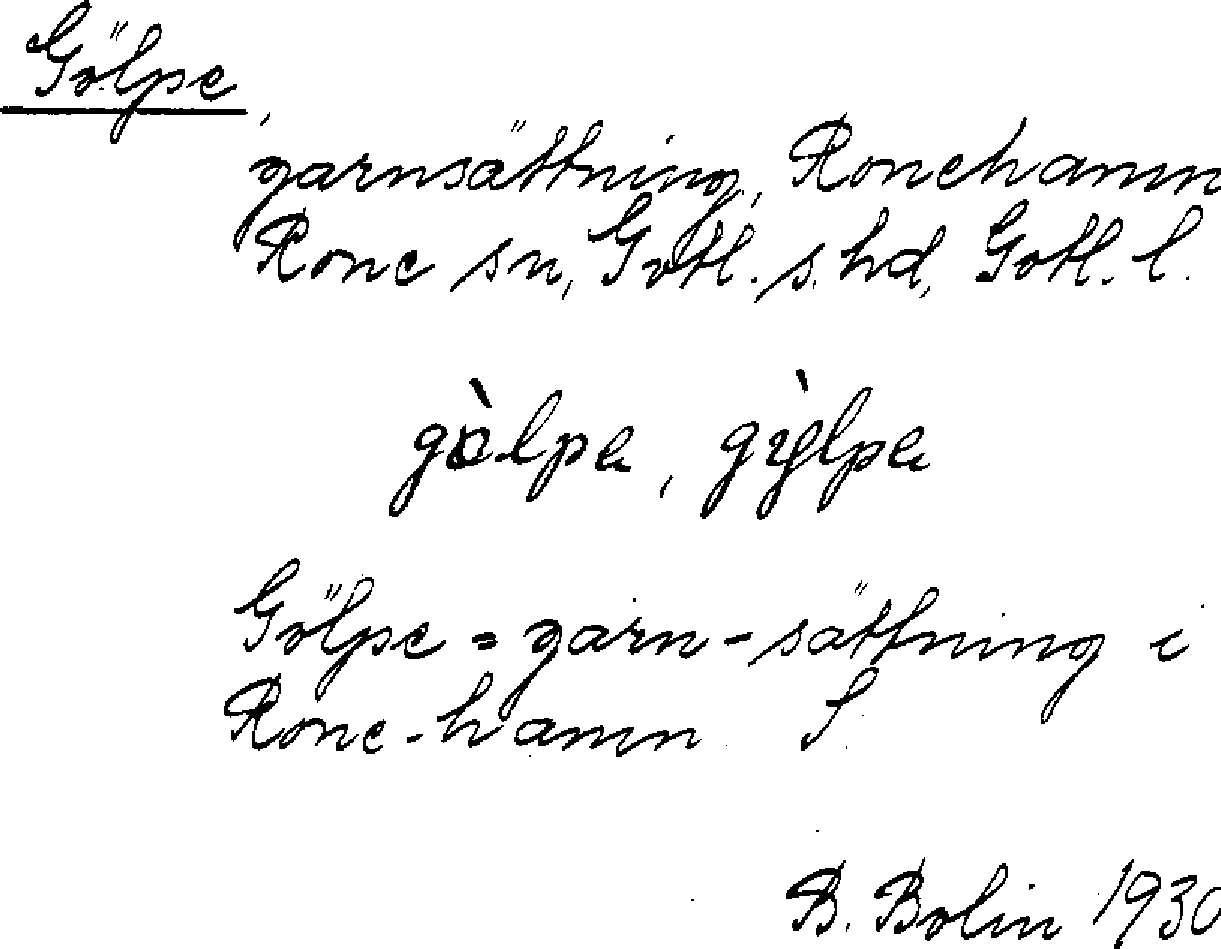 Gölpe,
garnsättning, Ronehamn
Rone sn, Gotl. s. hd, Gotl. l.
gòlpa, gỳlpa
Gölpe = garn-sättning i
Rone-hamn S.
B. Bolin 1930